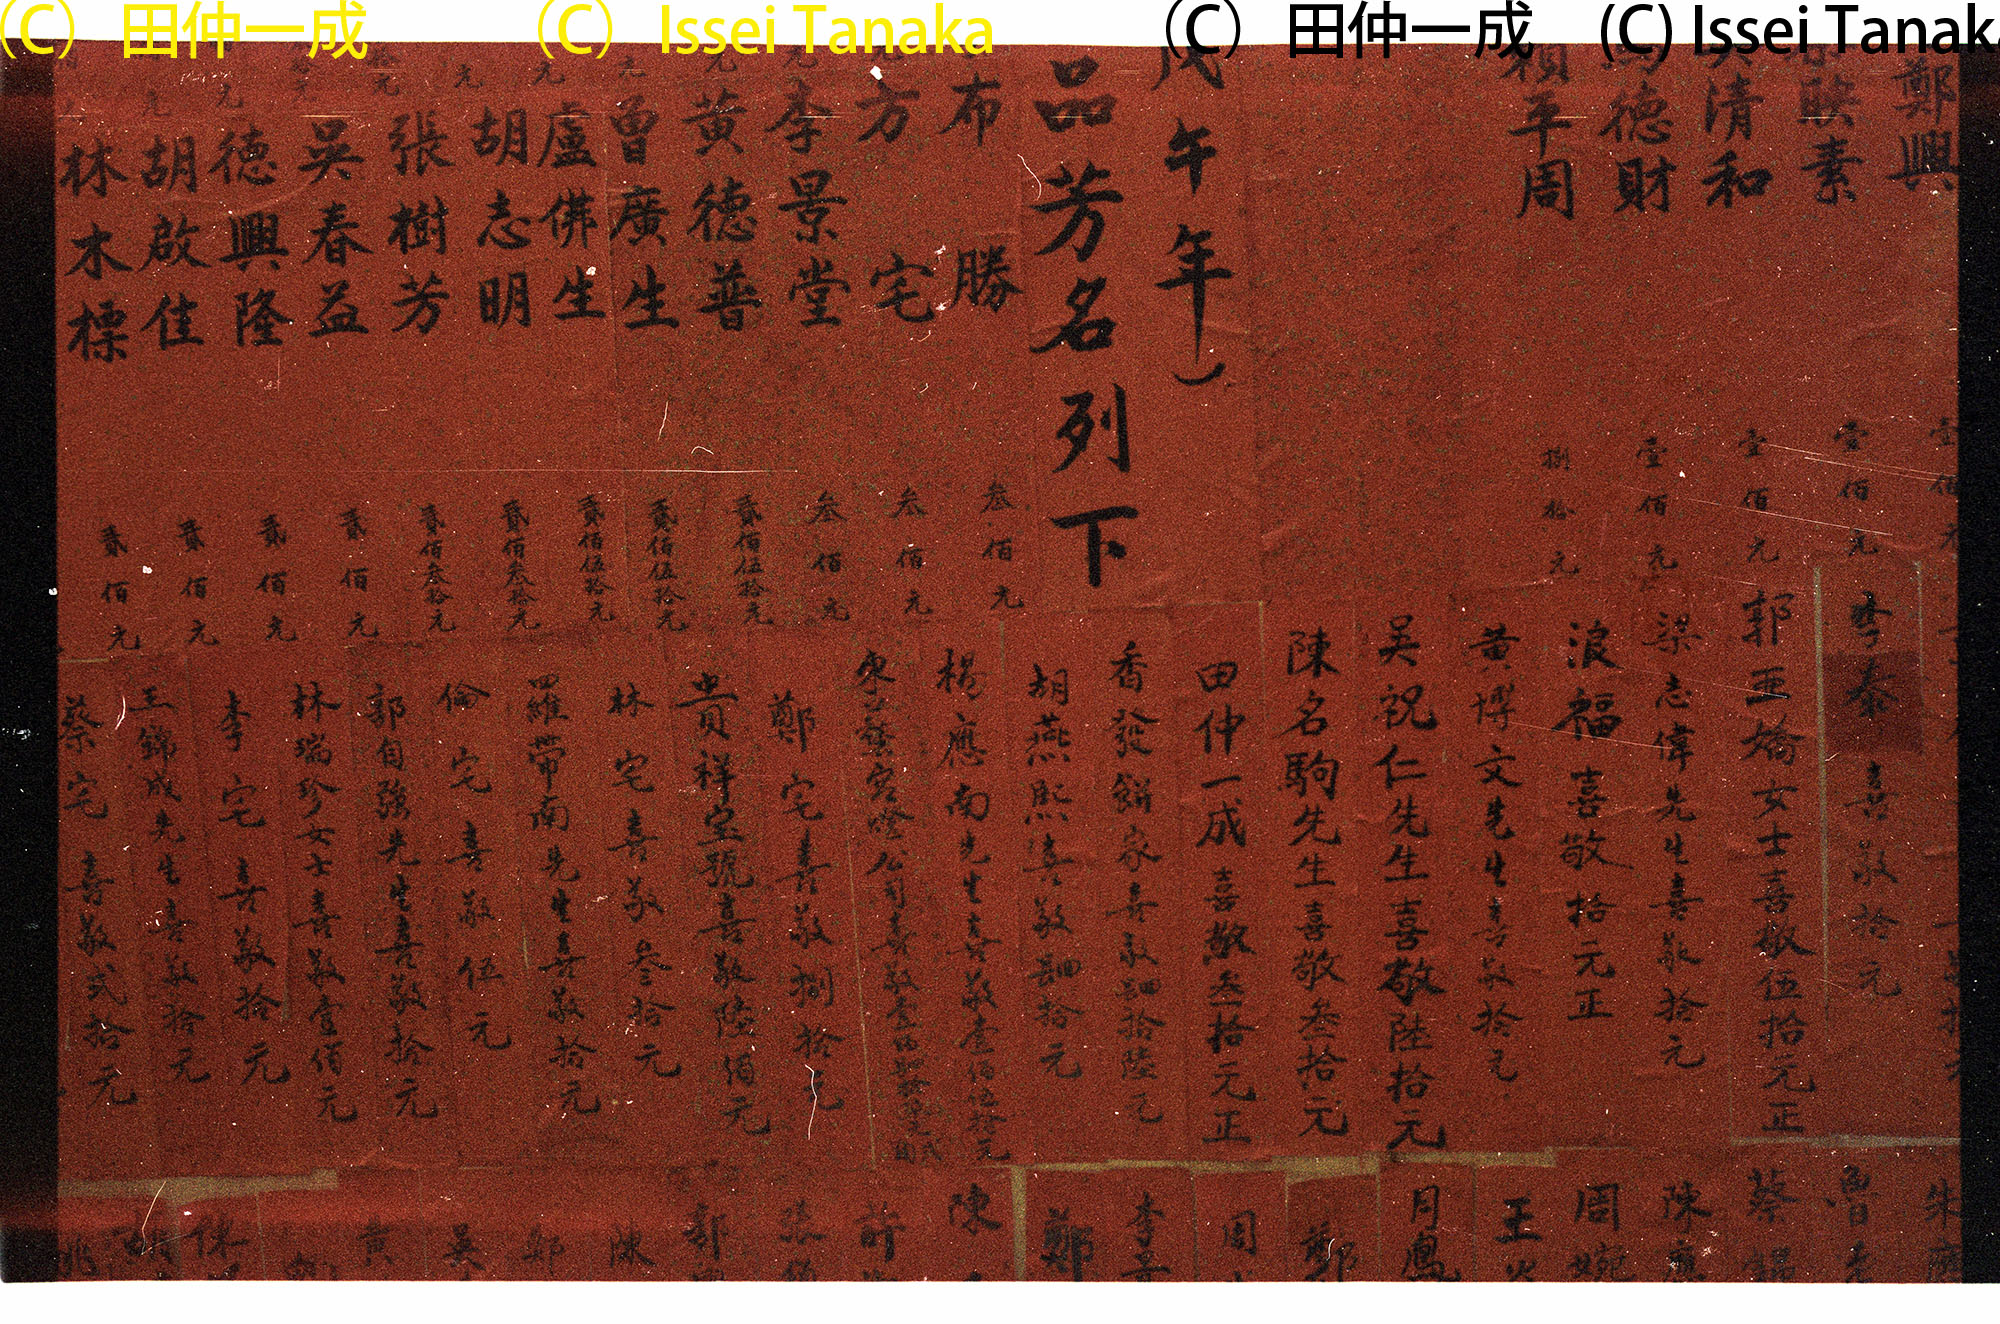 (C) 田仲一成
(C) Issei Tanaka
(C) 田仲一成
(C) Issei Tanaka
鄭興
素
壹佰元
清和
壹佰元
德財
壹佰元
賴平周
捌拾元
戊午年）
品芳名列下
布勝
叁佰元
方宅
叁佰元
李景堂
叁佰元
黃德普
貳佰伍拾元
曾廣生
貳佰伍拾元
盧佛生
貳佰伍拾元
胡志明
貳佰叁拾元
張樹芳
貳佰叁拾元
吳春益
貳佰元
德興隆
貳佰元
胡啟佳
貳佰元
林木標
貳佰元
李泰喜敬拾元
郭亞嬌女士喜敬伍拾元正
梁志偉先生喜敬拾元
浪福喜敬拾元正
黃博文先生喜敬拾元
吳祝仁先生喜敬陸拾元
陳名駒先生喜敬叁拾元
田仲一成喜敬叁拾元正
香發餅家喜敬四拾陸元
胡燕熙喜敬四拾元
楊應南先生喜敬壹佰伍拾元
公司喜敬壹佰
鄭宅喜敬捌拾元
貴祥金號喜敬陸佰元
林宅喜敬叁拾元
羅帶南先生喜敬拾元
倫宅喜敬伍元
郭自強先生喜敬拾元
林瑞珍女士喜敬壹佰元
李宅喜敬拾元
王錦成先生喜敬拾元
蔡宅喜敬弍拾元
朱
魯
蔡
陳應
周婉
王
月鳳
鄭
周
李
鄭
陳
許
張
郭
陳
鄭
吳
黃
林
胡
姚